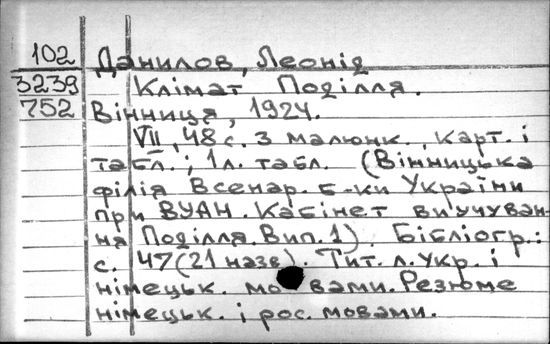 102 Данилов, Леонід
3239 Клімат Поділля.
752 Вінниця, 1924.
VII, 48 с. з малюнк., карт. і
табл.; 1 л. табл. (Вінницька
філія Всенар. б-ки України
при ВУАН. Кабінет виучуван-
ня Поділля. Вип. 1). Бібліогр.:
с. 47 (21 назв). Тит. л. укр. і
німецьк. мовами. Резюме
німецьк. і рос. мовами.